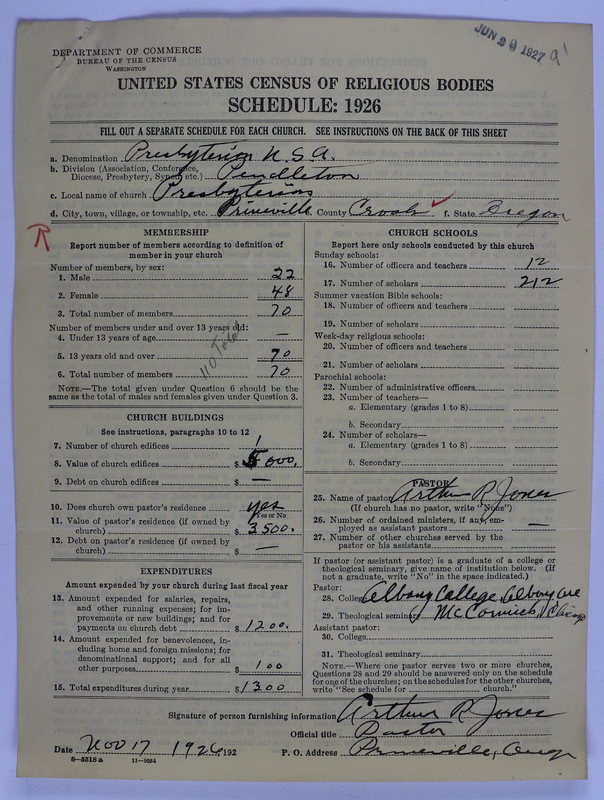 JUN 28 1927
91
DEPARTMENT OF COMMERCE
BUREAU OF THE CENSUS
WASHINGTON
UNITED STATES CENSUS OF RELIGIOUS BODIES
SCHEDULE: 1926
FILL OUT A SEPARATE SCHEDULE FOR EACH CHURCH. SEE INSTRUCTIONS ON THE BACK OF THIS SHEET
a. Denomination Presbyterian U.S.A.
b. Division (Association, Conference, Diocese, Presbytery, Synod, etc.) Pendleton
c. Local name of church Presbyterian
d. City, town, village, or township, etc. Prineville County Crook f. State Oregon
MEMBERSHIP
Report number of members according to definition of member in your church
Number of members, by sex:
1. Male 22
2. Female 48
3. Total number of members 70
Number of members under and over 13 years old:
4. Under 13 years of age —
5. 13 years old and over 70
6. Total number of members 70
NOTE.—The total given under Question 6 should be the same as the total of males and females given under Question 3.
CHURCH BUILDINGS
See instructions, paragraphs 10 to 12
7. Number of church edifices 1
8. Value of church edifices $ 5000.
9. Debt on church edifices $ —
10. Does church own pastor's residence yes
Yes or No
11. Value of pastor's residence (if owned by church) $ 3500.
12. Debt on pastor's residence (if owned by church) $ —
EXPENDITURES
Amount expended by your church during last fiscal year
13. Amount expended for salaries, repairs, and other running expenses; for improvements or new buildings; and for payments on church debt $ 1200.
14. Amount expended for benevolences, including home and foreign missions; for denominational support; and for all other purposes $ 100
15. Total expenditures during year $ 1300
CHURCH SCHOOLS
Report here only schools conducted by this church
Sunday schools:
16. Number of officers and teachers 12
17. Number of scholars 212
Summer vacation Bible schools:
18. Number of officers and teachers
19. Number of scholars
Week-day religious schools:
20. Number of officers and teachers
21. Number of scholars
Parochial schools:
22. Number of administrative officers
23. Number of teachers—
a. Elementary (grades 1 to 8)
b. Secondary
24. Number of scholars—
a. Elementary (grades 1 to 8)
b. Secondary
PASTOR
25. Name of pastor Arthur R Jones
(If church has no pastor, write "None")
26. Number of ordained ministers, if any, employed as assistant pastors —
27. Number of other churches served by the pastor or his assistants
If pastor (or assistant pastor) is a graduate of a college or theological seminary, give name of institution below. (If not a graduate, write "No" in the space indicated.)
Pastor:
28. College Albany College, Albany Ore
29. Theological seminary McCormick, Chicago
Assistant pastor:
30. College
31. Theological seminary
NOTE.—Where one pastor serves two or more churches, Questions 28 and 29 should be answered only on the schedule for one of the churches; on the schedules for the other churches, write "See schedule for church."
Signature of person furnishing information Arthur R Jones
Official title Pastor
Date Nov 17 1926 192 P. O. Address Prineville, Oreg
8—5518 a 11—9034